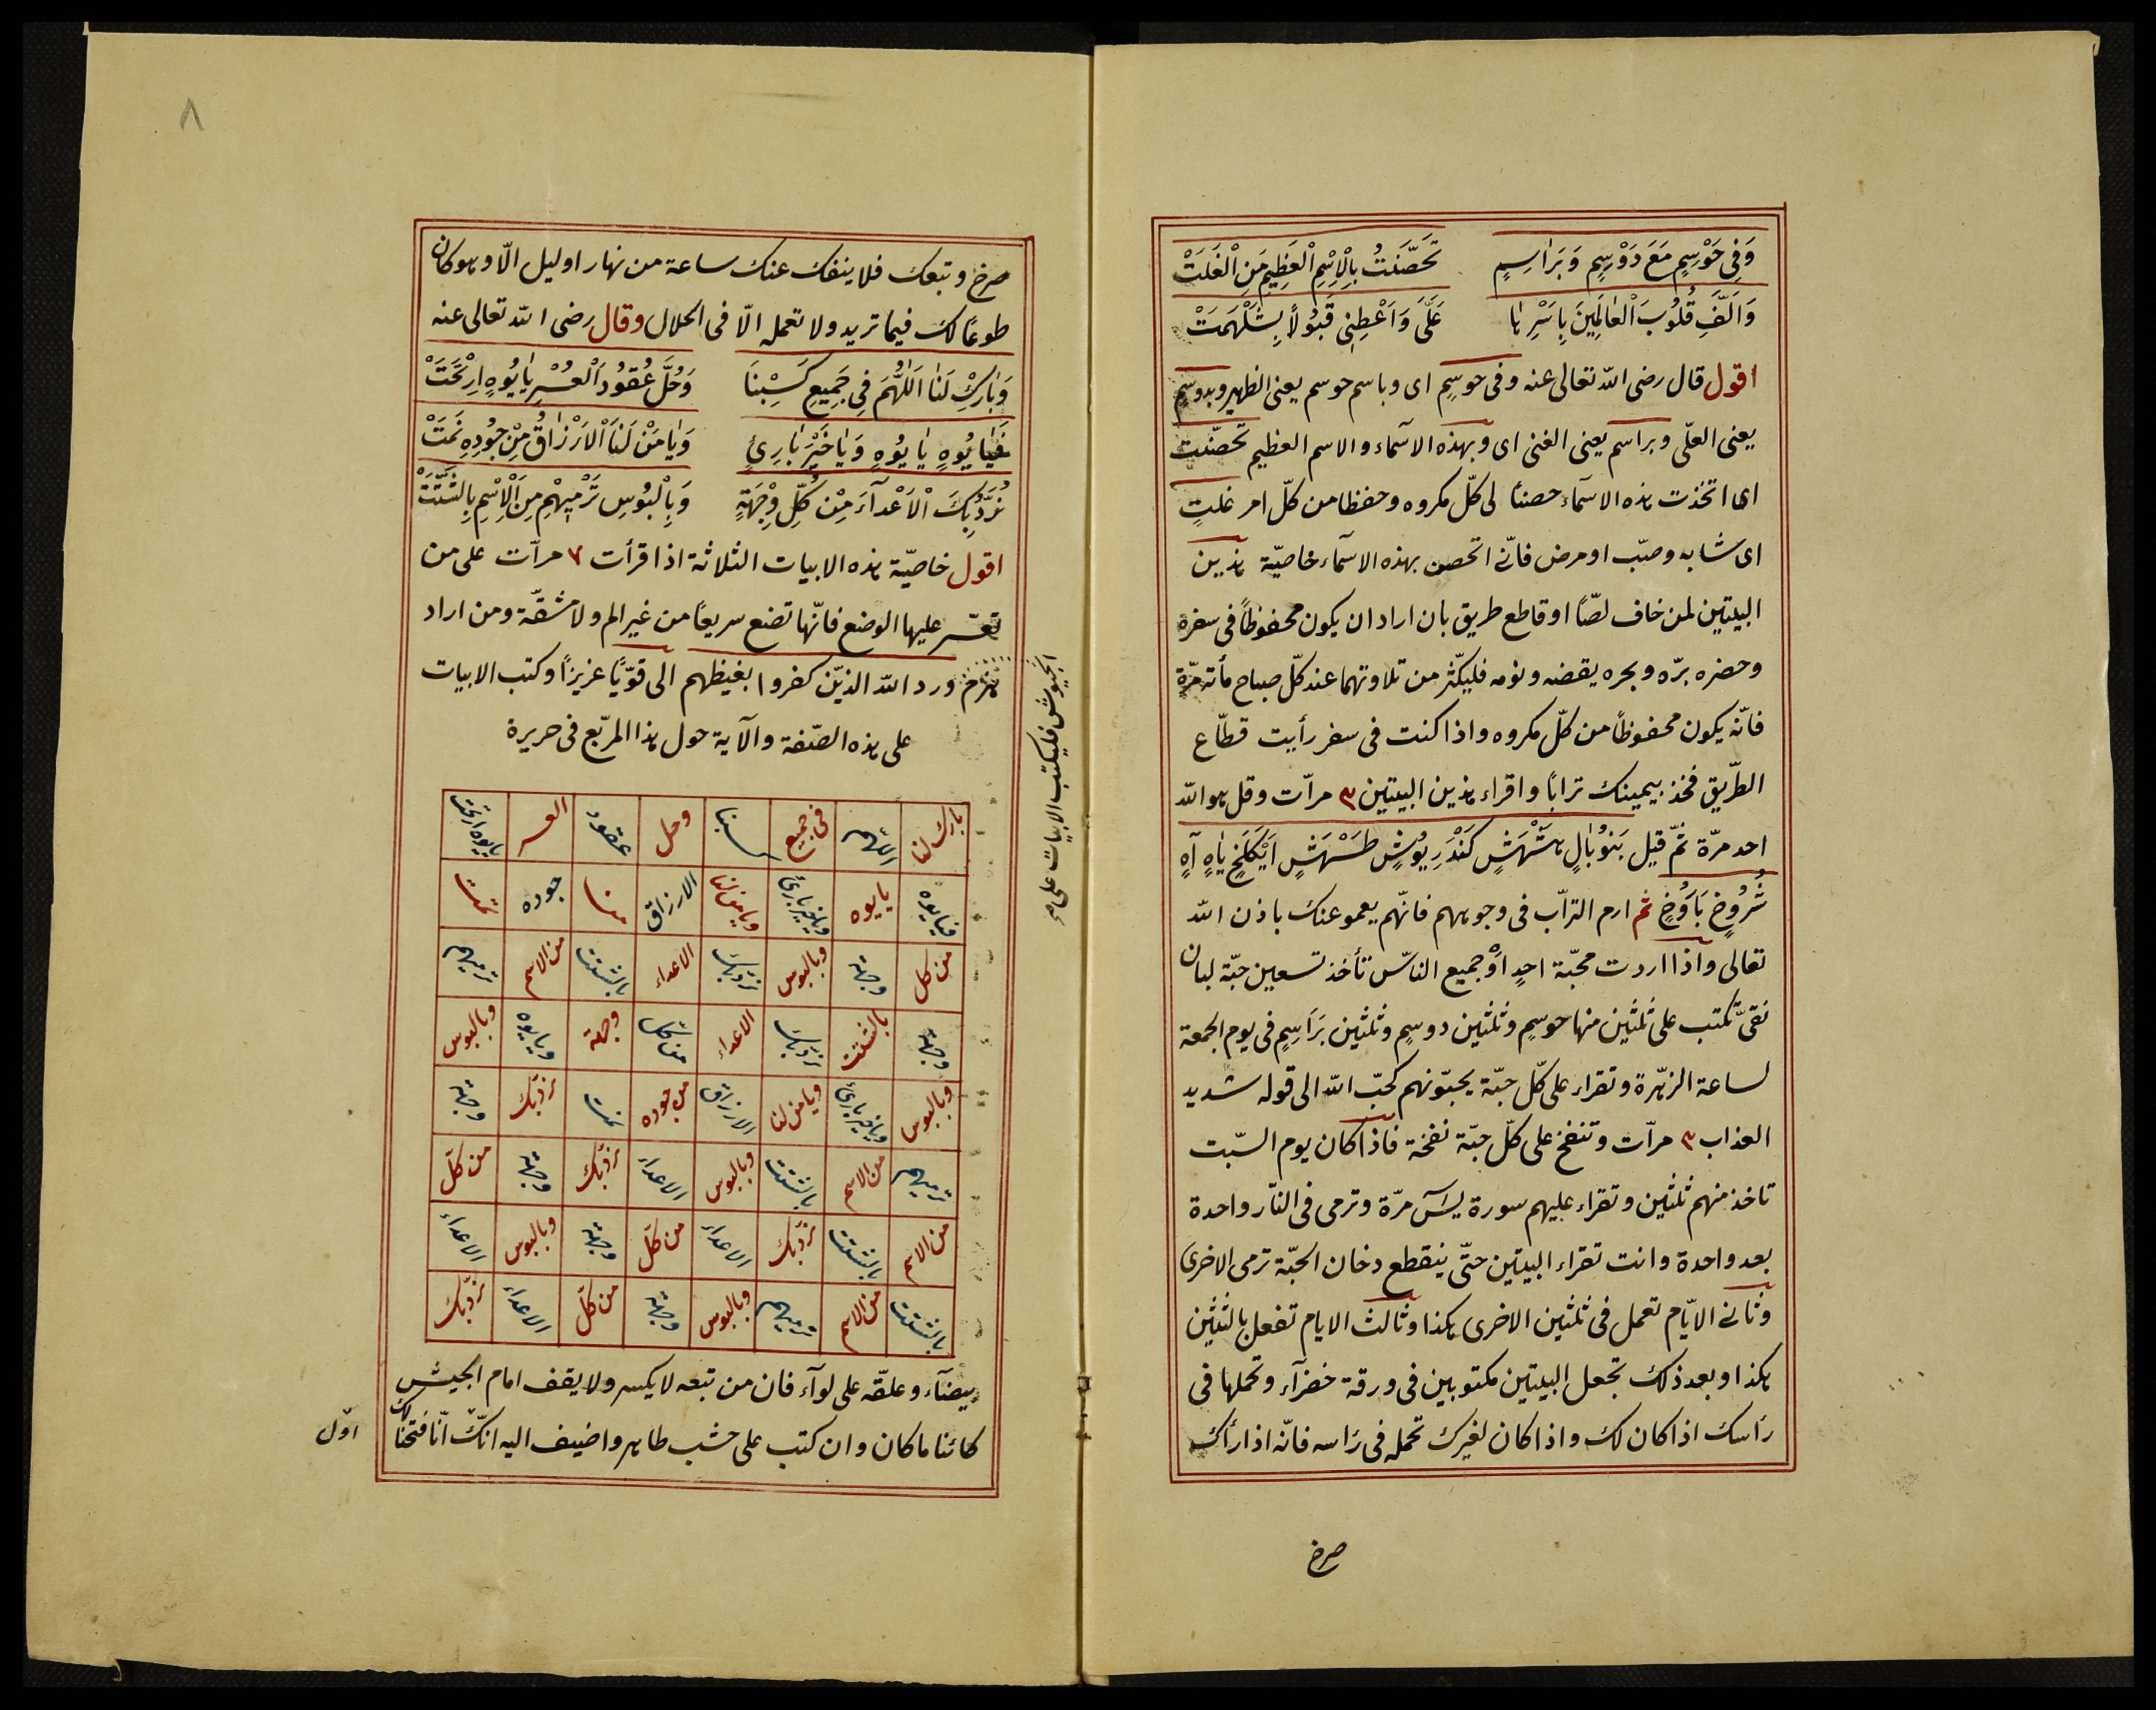 وَفِى حَوْسِمٍ مَعَ دَوْسِمٍ وَبَرَاسِمٍ تَحَصَّنْتُ بِالْاِسْمِ الْعَظِيمِ مِنَ الْغَلَتْ
وَاَلِّفْ قُلُوبَ الْعَالَمِينَ بِاَسْرِهَا عَلَىَّ وَاَعْطِنِى قَبُولاً بِشَلْهَمَتْ
اقول قال رضى الله تعالى عنه وفى حوسمٍ اى وباسم حوسم يعنى الظهير وبدوسمٍ
يعنى العلّى وبراسم يعنى الغنى اى وبهذه الاسمآء والاسم العظيم تحصّنت
اى اتخذت هذه الاسمآء حصنا لى كلّ مكروه وحفظا من كلّ امر غلتٍ
اى شابه وصبّ او مرض فانّى اتحصن بهذه الاسمآء خاصيّة هذين
البيتين لمن خاف لصّا او قاطع طريق بان اراد ان يكون محفوظاً فى سفره
وحضره برّه وبحره يقضه ونومه فليكّثر من تلاوتهما عند كلّ صباح مأته مرّة
فانّه يكون محفوظاً من كلّ مكروه واذا كنت فى سفر رأيت قطّاع
الطّريق فخذ بيمينك ترابًا واقراء هذين البيتين ٣ مرآت وقل هو الله
احد مرّة ثمّ قيل
ثم ارم الترّاب فى وجوههم فانّهم يعمو عنك باذن الله
تعالى واذا اردت محبّة احدٍ اَوْ جميع النّاس تأخذ تسعين حبّة لبان
نقىّ تكتب على ثلثين منها حوسمٍ وثلثين دوسمٍ وثلثين بَرَاسِمٍ فى يوم الجمعة
لساعة الزهّرة وتقراء على كلّ حبّة يحبّونهم كحبّ الله الى قوله شديد
العذاب ٣ مرآت وتنفخ على كلّ حبّة نفخة فاذا كان يوم السّبت
تاخذ منهم ثلثين وتقراء عليهم سورة يسٓ مرّة وترمى فى النّار واحدة
بعد واحدة وانت تقراء البيتين حتّى ينقطع دخان الحبّة ترمى الاخرى
وثانى الايّام تعمل فى ثلثين الاخرى هكذا وثالث الايام تفعل بالثلثين
هكذا وبعد ذلك تجعل البيتين مكتوبين فى ورقة خضرآء وتحملها فى
رَاسك اذا كان لك واذا كان لغيرك تحمله فى رَاسه فانّه اذا رأك
صرخ
٨
صرخ وتبعك فلا ينفك عنك ساعة من نهار او ليل الّا وهو كان
طوعًا لك فيما تريد ولا تعمله الّا فى الحلال وقال رضى الله تعالى عنه
وَبَارِكْ لَنَا اَللّٰهُمَّ فِى جَمِيعِ كَسْبِنَا وَحُلَّ عُقُودَ الْعُسْرِ يَايُوهٍ اِرْتَحَتْ
فَيَايُوهٍ يَايُوهٍ وَيَاخَيْرَ بَارِئٍ وَيَامَنْ لَنَا الْاَرْزَاقُ مِنْ جُودِهِ نَمَتْ
نُرَدُّ بِكَ الْاَعْدَآءَ مِنْ كُلِّ وِجْهَةٍ وَبِالْبُوسِ تَرْمِيهِمِ مِنَ الْاِسْمِ بِالشَّتَتْ
اقول خاصيّة هذه الابيات الثلاثة اذا قرأت ٧ مرآت على من
تعسّر عليها الوضع فانّها تضع سريعًا من غير الم ولا مشقّة ومن اراد
يهزم ورد الله الذيّن كفروا بغيظهم الى قوّيًا عزيزًا وكتب الابيات
على هذه الصّفة والآية حول هذا المربّع فى حريرة
الجيوش فليكتب الابيات على
بارك لنا اللهم فى جميع كسبنا وحل عقود العسر يايوه ارتحت
فيايوه يايوه وياخير بارئ ويامن لنا الارزاق من جوده نمت
من كل وجهة وبالبوس نردبك الاعداء بالشتت من الاسم ترميهم
وجهة بالشتت نردبك الاعداء من كل وجهة ويايوه وبالبوس
وبالبوس وياخير بارئ ويامن لنا الارزاق من جوده نمت نردبك وجهة
ترميهم من الاسم بالشتت وبالبوس الاعداء نردبك وجهة من كلّ
من الاسم بالشتت نردبك الاعداء من كلّ وجهة وبالبوس الاعداء
بالشتت من الاسم ترميهم وبالبوس وجهة من كلّ الاعداء نردبك
بيضآء وعلقّه على لوآء فان من تبعه لا يكسر ولا يقف امام الجيش
كائنا ما كان وان كتب على خشب طاهر واضيف اليه انّا فتحنا لك
اوّل